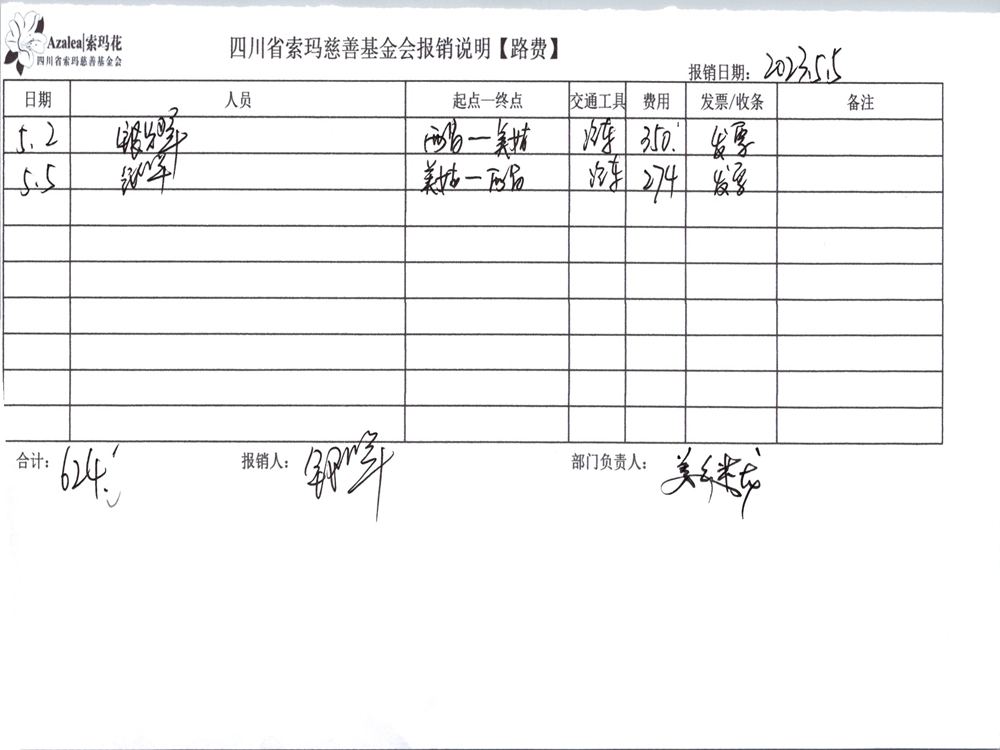 Azalea|索玛花
四川省索玛慈善基金会
四川省索玛慈善基金会报销说明【路费】
报销日期: 2023.5.5
日期 人员 起点—终点 交通工具 费用 发票/收条 备注
5.2 西昌—美姑 汽车 350. 发票
5.5 美姑—西昌 汽车 274 发票
合计: 624. 报销人: 部门负责人: